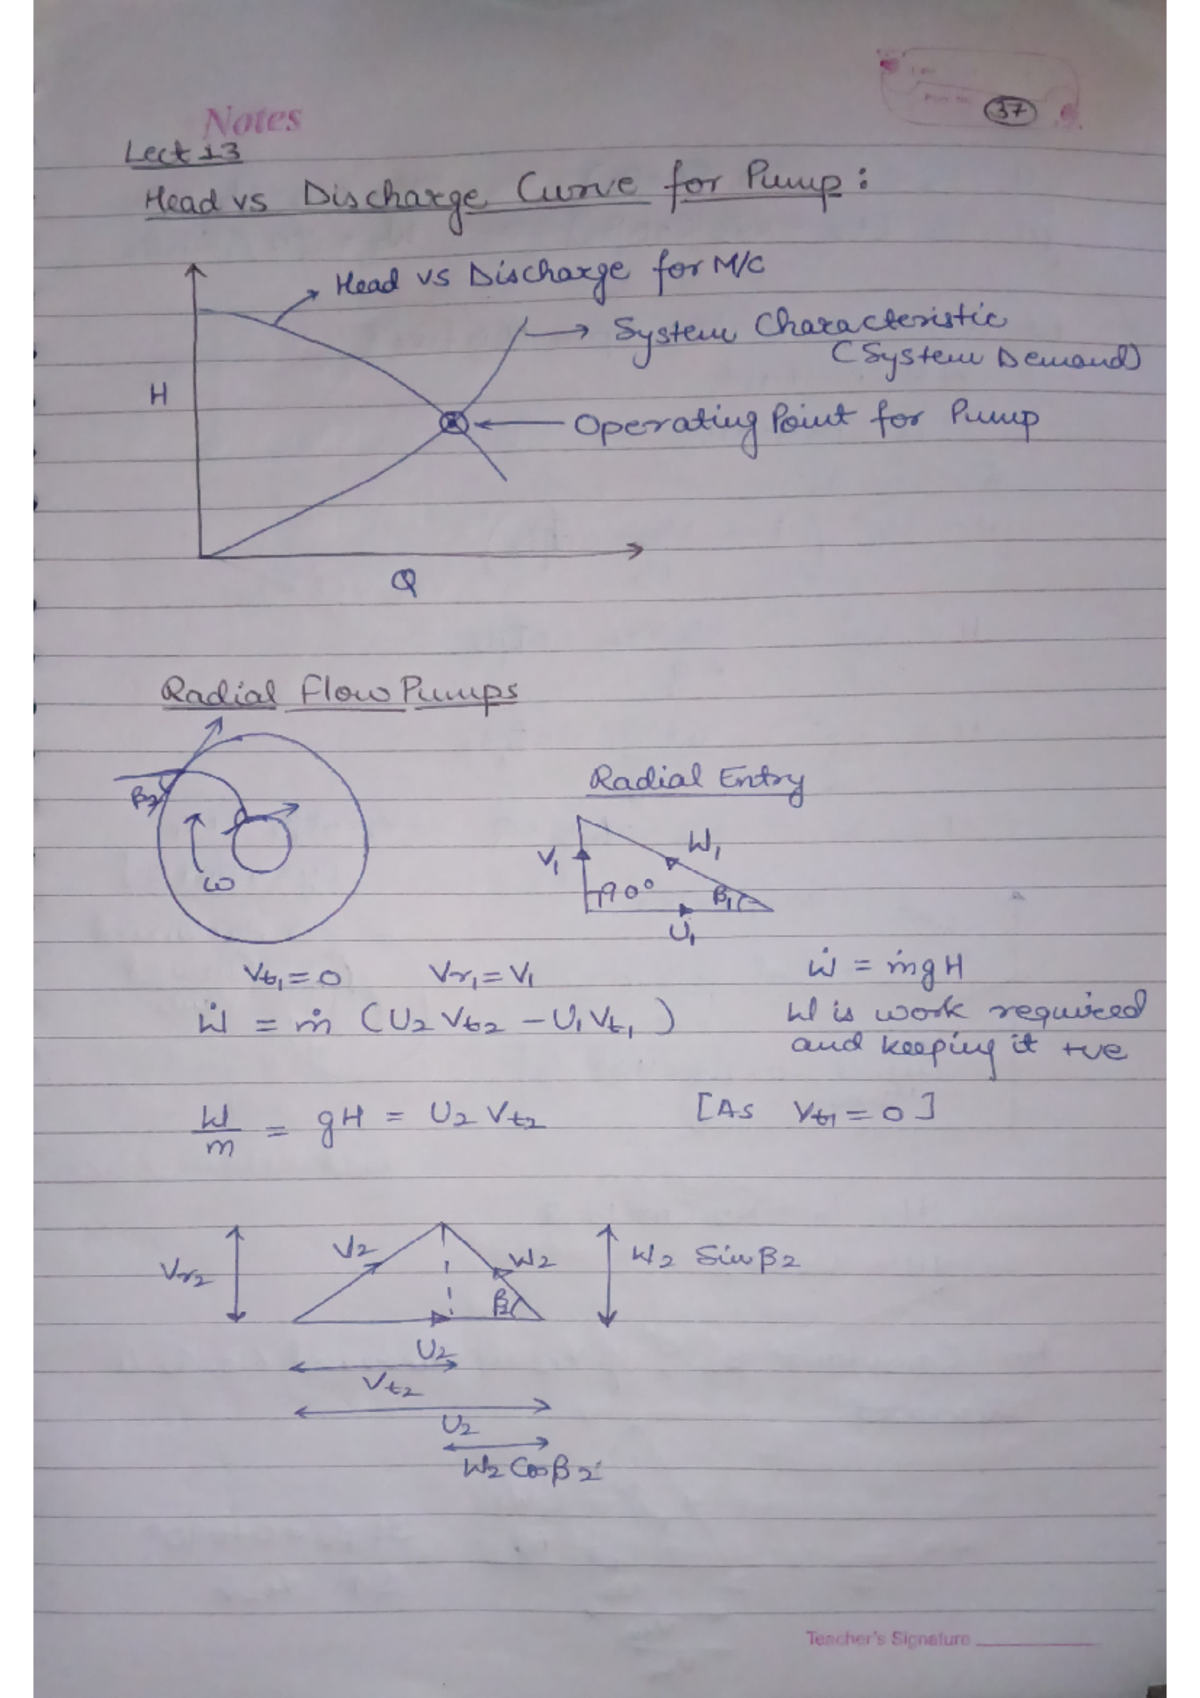 Notes
37
Lect 13
Head vs Discharge Curve for Pump:
Head vs Discharge for M/C
System Characteristic
(System Demand)
H
Operating Point for Pump
Q
Radial Flow Pumps
Radial Entry
β2
ω
V1
W1
90°
β1
U1
Vt1 = 0 Vr1 = V1 Ẇ = ṁgH
Ẇ = ṁ (U2 Vt2 - U1 Vt1) W is work required
and keeping it +ve
W/m = gH = U2 Vt2 [As Vt1 = 0]
Vr2
V2
W2
β2
W2 Sinβ2
U2
Vt2
U2
W2 Cosβ2
Teacher's Signature